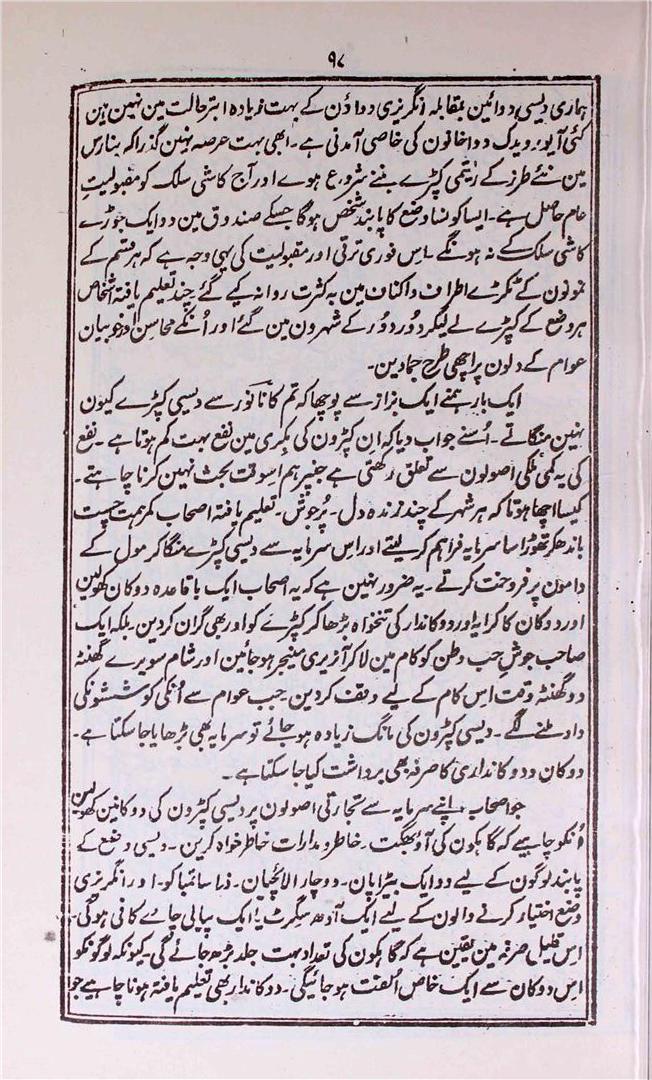 ۹۸
ہماری دیسی دوائین بمقابلہ انگریزی دواؤن کے بہت زیادہ ابتر حالت مین نہین ہین
کئی آیور ویدک دواخانون کی خاصی آمدنی ہے۔ ابھی بہت عرصہ نہین گذرا کہ بنارس
مین نئے طرز کے ریشمی کپڑے بننے شروع ہوے اور آج کاشی سلک کو مقبولیتِ
عام حاصل ہے۔ ایسا کونسا وضع کا پابند شخص ہوگا جسکے صندوق مین دو ایک جوڑے
کاشی سلک کے نہ ہونگے۔ اِس فوری ترقی اور مقبولیت کی یہی وجہ ہے کہ ہر قسم کے
نمونون کے ٹکڑے اطراف و اکناف مین بہ کثرت روانہ کیے گئے۔ چند تعلیم یافتہ اشخاص
ہر وضع کے کپڑے لے لیکر دور دور کے شہرون مین گئے اور اُنکے محاسن اور خوبیان
عوام کے دلون پر اچھی طرح جمادین۔
ایک بار ہمنے ایک بزاز سے پوچھا کہ تم کانانور سے دیسی کپڑے کیون
نہین منگاتے۔ اُسنے جواب دیا کہ اِن کپڑون کی بکری مین نفع بہت کم ہوتا ہے۔ نفع
کی یہ کمی ملکی اصولون سے تعلق رکھتی ہے جنپر ہم اسوقت بحث نہین کرنا چاہتے۔
کیسا اچھا ہوتا کہ ہر شہر کے چند زندہ دل۔ پُرجوش۔ تعلیم یافتہ اصحاب کمر ہمت چست
باندھکر تھوڑا سا سرمایہ فراہم کر لیتے اور اس سرمایہ سے دیسی کپڑے منگا کر مول کے
دامون پر فروخت کرتے۔ یہ ضرور نہین ہے کہ یہ اصحاب ایک باقاعدہ دوکان کھولین
اور دوکان کا کرایہ اور دوکاندار کی تنخواہ بڑھا کر کپڑے کو اور بھی گران کر دین۔ بلکہ ایک
صاحب جوشِ حب وطن کو کام مین لاکر آنریری منیجر ہو جائین اور شام سویرے گھنٹہ
دو گھنٹہ وقت اِس کام کے لیے وقف کر دین۔ جب عوام سے اُنکی کوششونکی
داد ملنے لگے۔ دیسی کپڑون کی مانگ زیادہ ہو جائے تو سرمایہ بھی بڑھایا جا سکتا ہے۔
دوکان و دوکانداری کا صرفہ بھی برداشت کیا جا سکتا ہے۔
جو اصحاب اپنے سرمایہ سے تجارتی اصولون پر دیسی کپڑون کی دوکانین کھولین
اُنکو چاہیے کہ گاہکون کی آؤ بھگت۔ خاطر و مدارات خاطر خواہ کرین۔ دیسی وضع کے
پابند لوگون کے لیے دو ایک بیڑا پان۔ دو چار الائچیان۔ ذرا سا تمباکو۔ اور انگریزی
وضع اختیار کرنے والون کے لیے ایک آدھ سگرٹ یا ایک پیالی چاے کافی ہوگی۔
اس قلیل صرفہ مین یقین ہے کہ گاہکون کی تعداد بہت جلد بڑھ جائے گی۔ کیونکہ لوگونکو
اِس دوکان سے ایک خاص اُلفت ہو جائیگی۔ دوکاندار بھی تعلیم یافتہ ہونا چاہیے جو